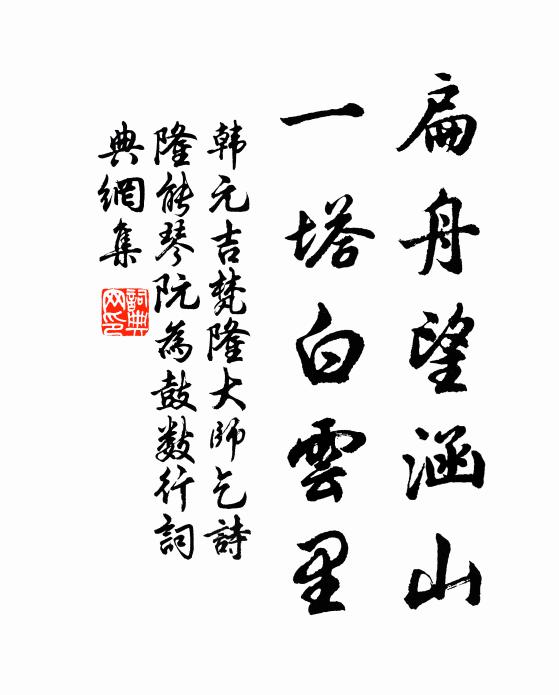 扁舟望涵山
一塔白雲里
韩元吉梵隆大師乞詩
隆能琴阮為鼓数行詞
典網集
詞典网印